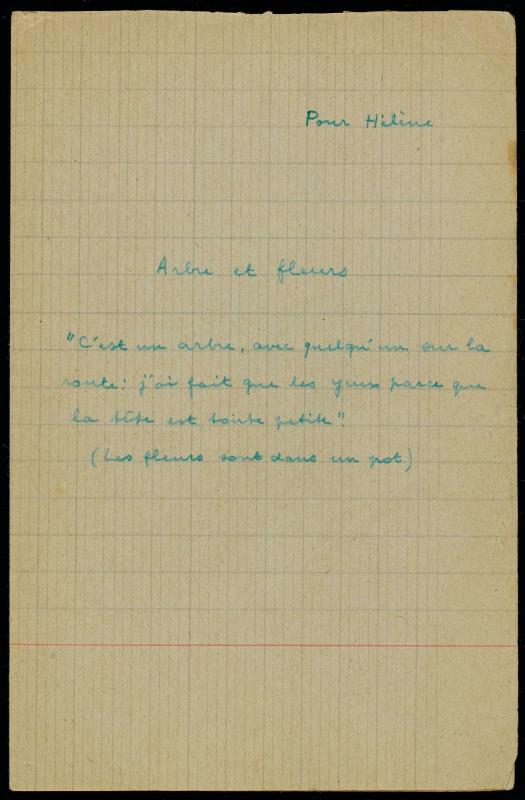 Pour Hélène
Arbre et fleurs
"C'est un arbre, avec quelqu'un sur la
route: j'ai fait que les yeux parce que
la tête est toute petite"!
(Les fleurs sont dans un pot)